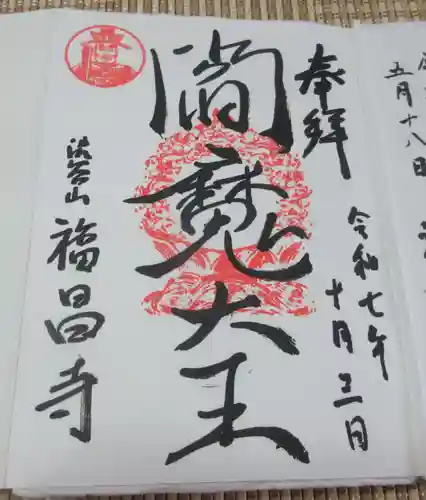 奉拝
令和七年
十月三一日
閻魔大王
渋谷山
福昌寺
五月十八日